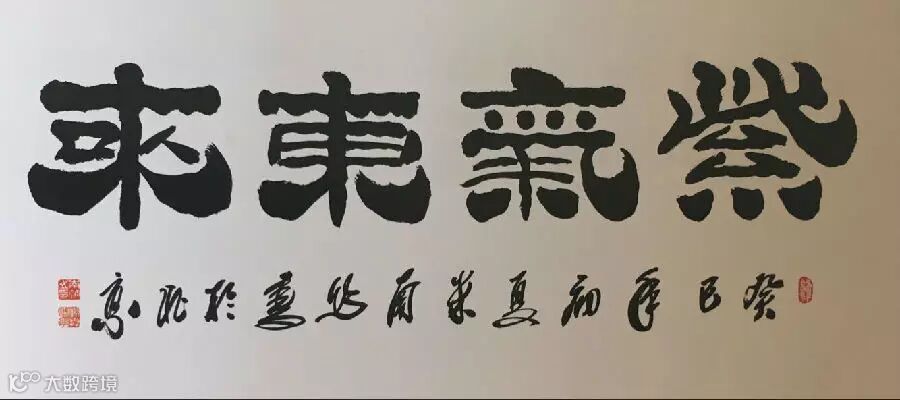 紫氣東來
癸巳年初夏書於北京
大数跨境